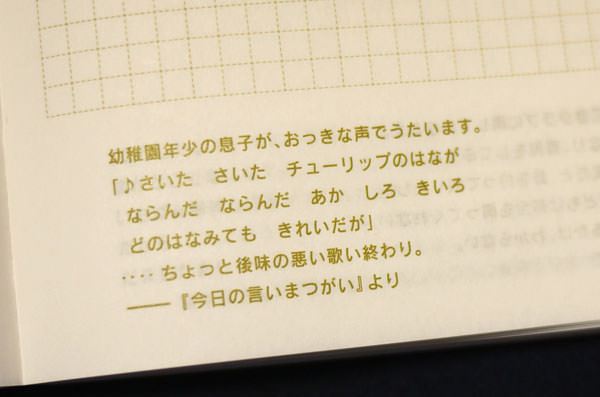 幼稚園年少の息子が、おっきな声でうたいます。
「♪さいた　さいた　チューリップのはなが
ならんだ　ならんだ　あか　しろ　きいろ
どのはなみても　きれいだが」
‥‥ちょっと後味の悪い歌い終わり。
――『今日の言いまつがい』より